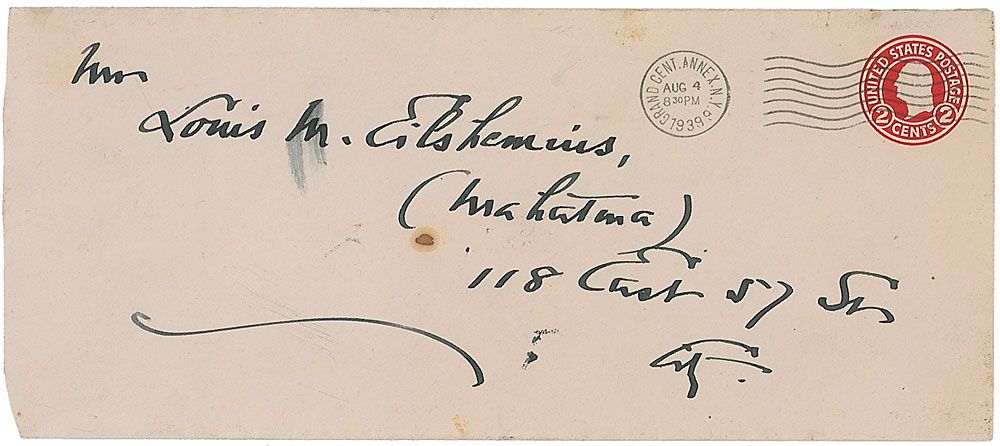 Mr
Louis M. Eilshemius,
(Mahatma)
118 East 57 St
City.
GRAND CENT. ANNEX. N.Y.
AUG 4
8 30 PM
1939
UNITED STATES POSTAGE
2 CENTS 2